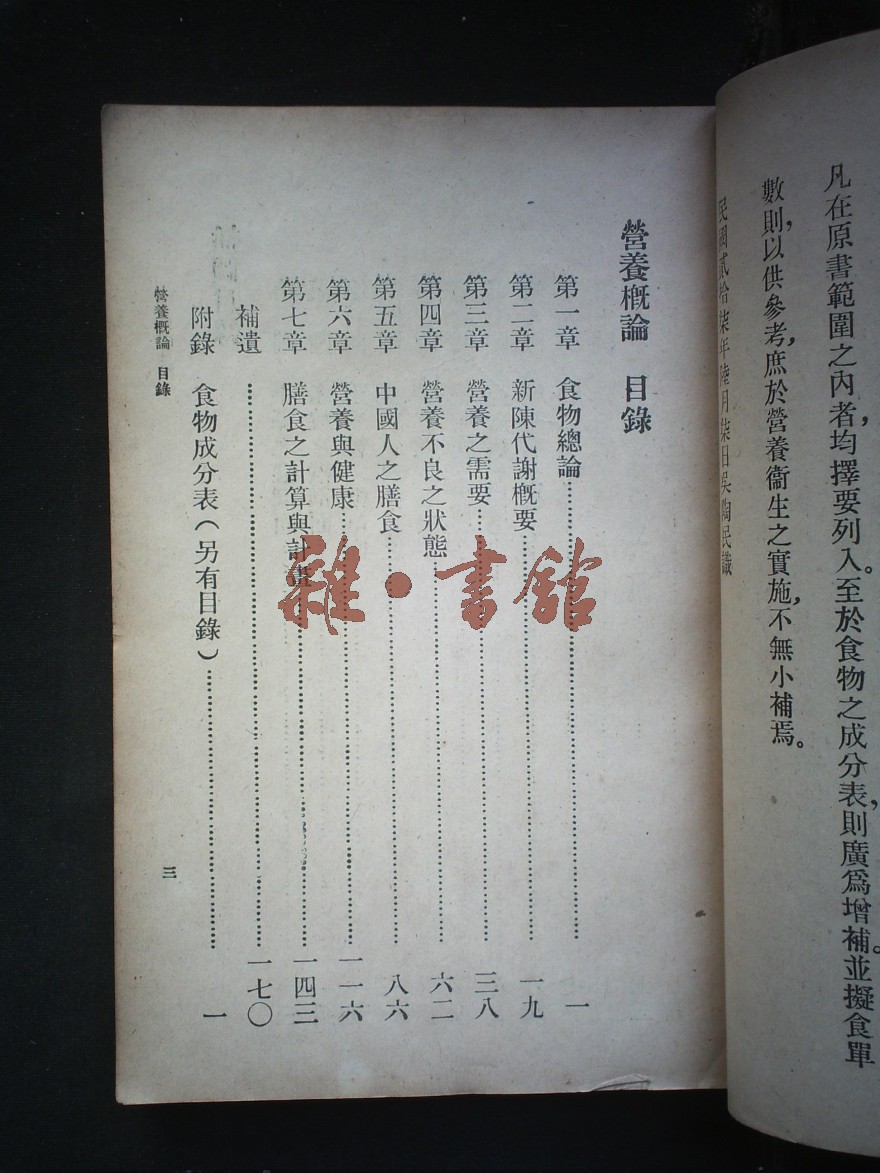 凡在原書範圍之內者，均擇要列入。至於食物之成分表，則廣爲增補。並擬食單
數則，以供參考，庶於營養衞生之實施，不無小補焉。
民國貳拾柒年陸月柒日吳陶民識
營養概論　目錄
第一章　食物總論……一
第二章　新陳代謝概要……一九
第三章　營養之需要……三八
第四章　營養不良之狀態……六二
第五章　中國人之膳食……八六
第六章　營養與健康……一一六
第七章　膳食之計算與計畫……一四三
補遺……一七〇
附錄　食物成分表（另有目錄）……一
營養概論　目錄
三
雜·書館